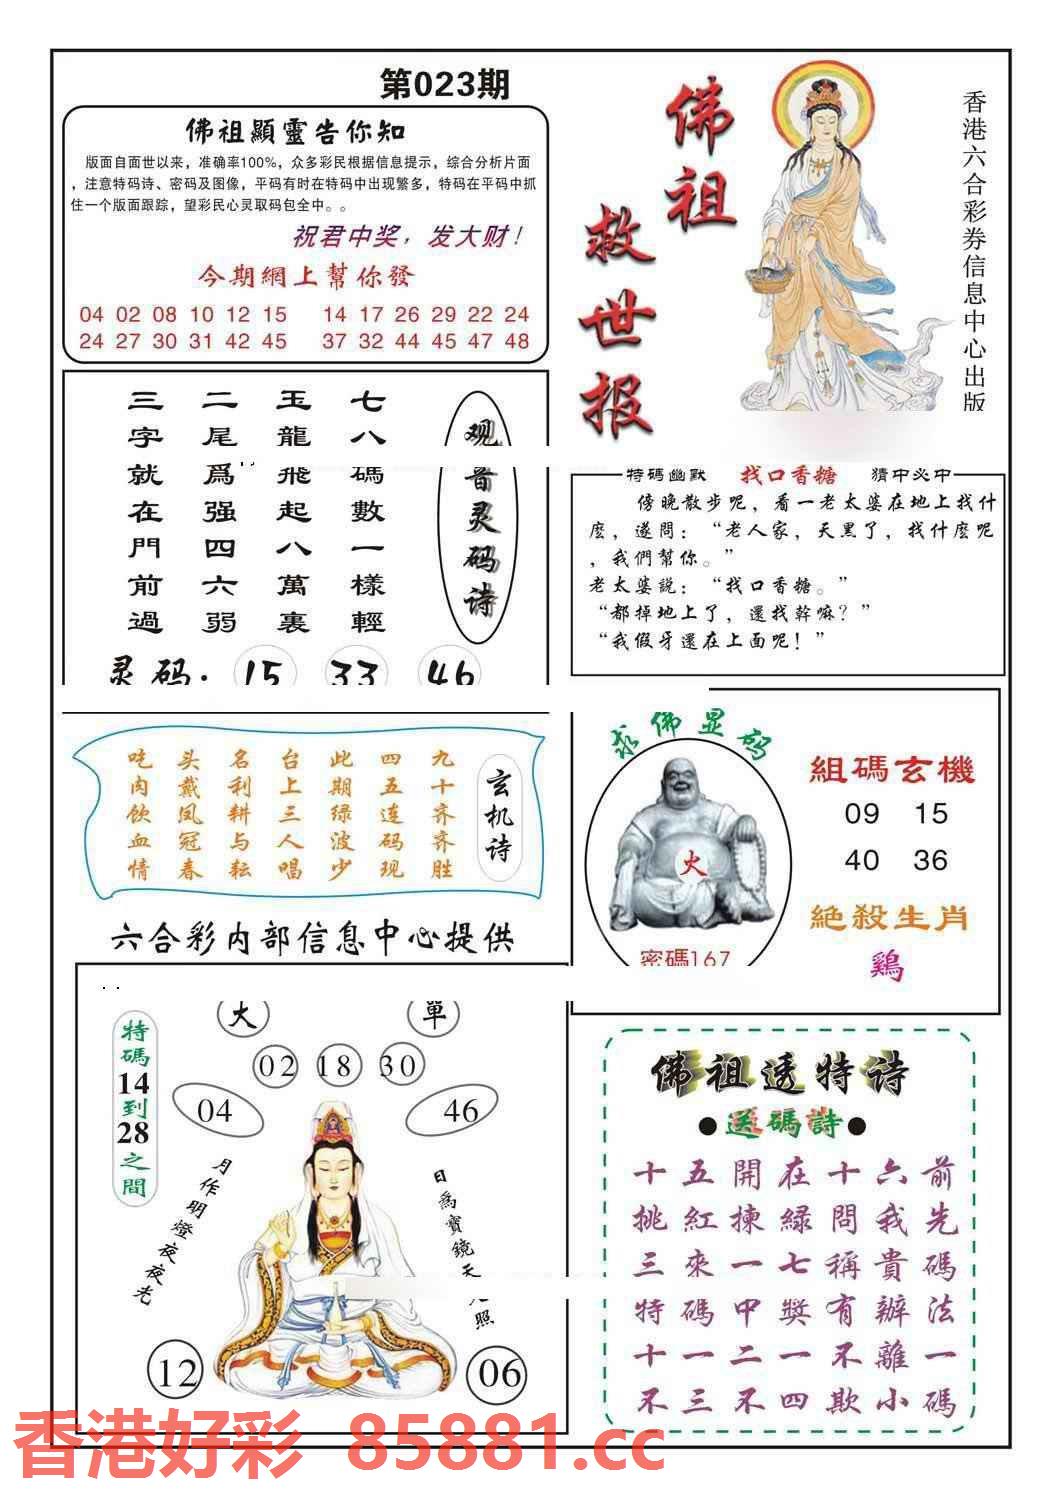 第023期
佛祖顯靈告你知
版面自面世以来，准确率100%，众多彩民根据信息提示，综合分析片面
，注意特码诗、密码及图像，平码有时在特码中出现繁多，特码在平码中抓
住一个版面跟踪，望彩民心灵取码包全中。。
祝君中奖，发大财！
今期網上幫你發
04 02 08 10 12 15 14 17 26 29 22 24
24 27 30 31 42 45 37 32 44 45 47 48
佛祖
救世报
香港六合彩券信息中心出版
观音灵码诗
七八碼數一樣輕
玉龍飛起八萬裏
二尾爲强四六弱
三字就在門前過
灵码：15 33 46
特碼幽默 找口香糖 猜中必中
傍晚散步呢，看一老太婆在地上找什
麽，遂問：“老人家，天黑了，找什麽呢
，我們幫你。”
老太婆説：“找口香糖。”
“都掉地上了，還找幹嘛？”
“我假牙還在上面呢！”
玄机诗
九十齐齐胜
四五连码现
此期绿波少
台上三人唱
名利耕与耘
头戴凤冠春
吃肉饮血情
求佛显码
火
密碼167
組碼玄機
09 15
40 36
絶殺生肖
鷄
六合彩内部信息中心提供
特碼14到28之間
大 單
02 18 30
04 46
月作明燈夜夜光
日爲寶鏡天
照
12 06
佛祖透特诗
●送碼詩●
十五開在十六前
挑紅揀緑問我先
三來一七稱貴碼
特碼中獎有辦法
十一二一不離一
不三不四欺小碼
香港好彩 85881.cc